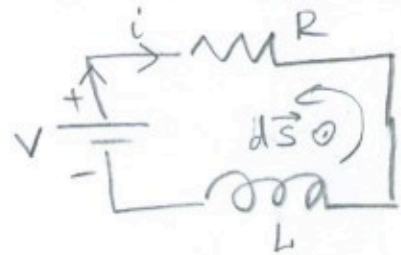 i
R
+
V
-
ds⃗ ⊙
L